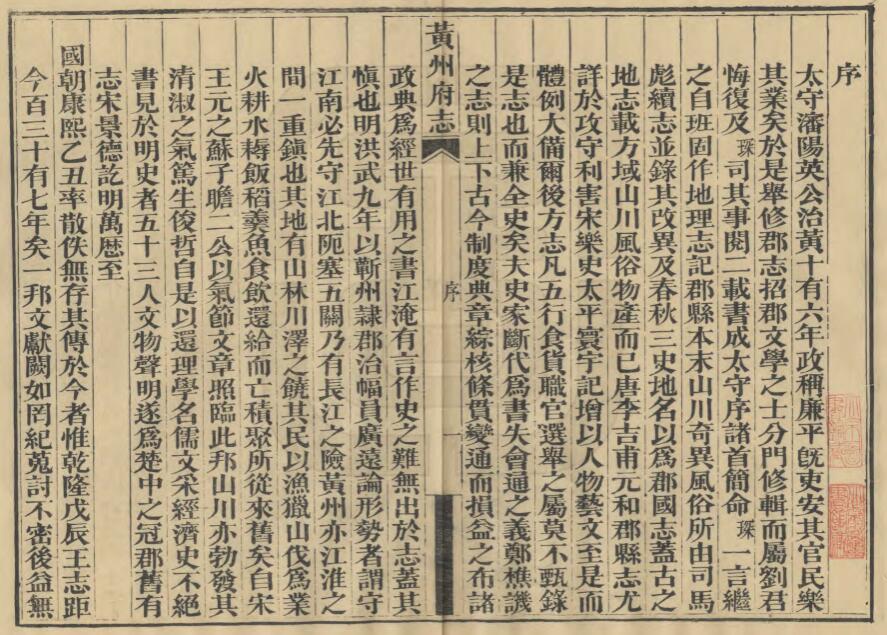 序
太守瀋陽英公治黃十有六年政稱廉平旣吏安其官民樂
其業矣於是舉修郡志招郡文學之士分門修輯而屬劉君
悔復及琛司其事閱一載書成太守序諸首簡命琛一言繼
之自班固作地理志記郡縣本末山川奇異風俗所由司馬
彪續志並錄其改異及春秋三史地名以爲郡國志蓋古之
地志載方域山川風俗物產而已唐李吉甫元和郡縣志尤
詳於攻守利害宋樂史太平寰宇記增以人物藝文至是而
體例大備爾後方志凡五行食貨職官選舉之屬莫不甄錄
是志也而兼全史矣夫史家斷代爲書失會通之義鄭樵譏
之志則上下古今制度典章綜核條貫變通而損益之布諸
黃州府志
序
一
政典爲經世有用之書江淹有言作史之難無出於志蓋其
愼也明洪武九年以蘄州隸郡治幅員廣遠論形勢者謂守
江南必先守江北阨塞五關乃有長江之險黃州亦江淮之
間一重鎮也其地有山林川澤之饒其民以漁獵山伐爲業
火耕水耨飯稻羹魚食飲還給而亡積聚所從來舊矣自宋
王元之蘇子瞻二公以氣節文章照臨此邦山川亦勃發其
清淑之氣篤生俊哲自是以還理學名儒文采經濟史不絕
書見於明史者五十三人文物聲明遂爲楚中之冠郡舊有
志宋景德訖明萬歷至
國朝康熙乙丑率散佚無存其傳於今者惟乾隆戊辰王志距
今百三十有七年矣一邦文獻闕如罔紀蒐討不密後益無